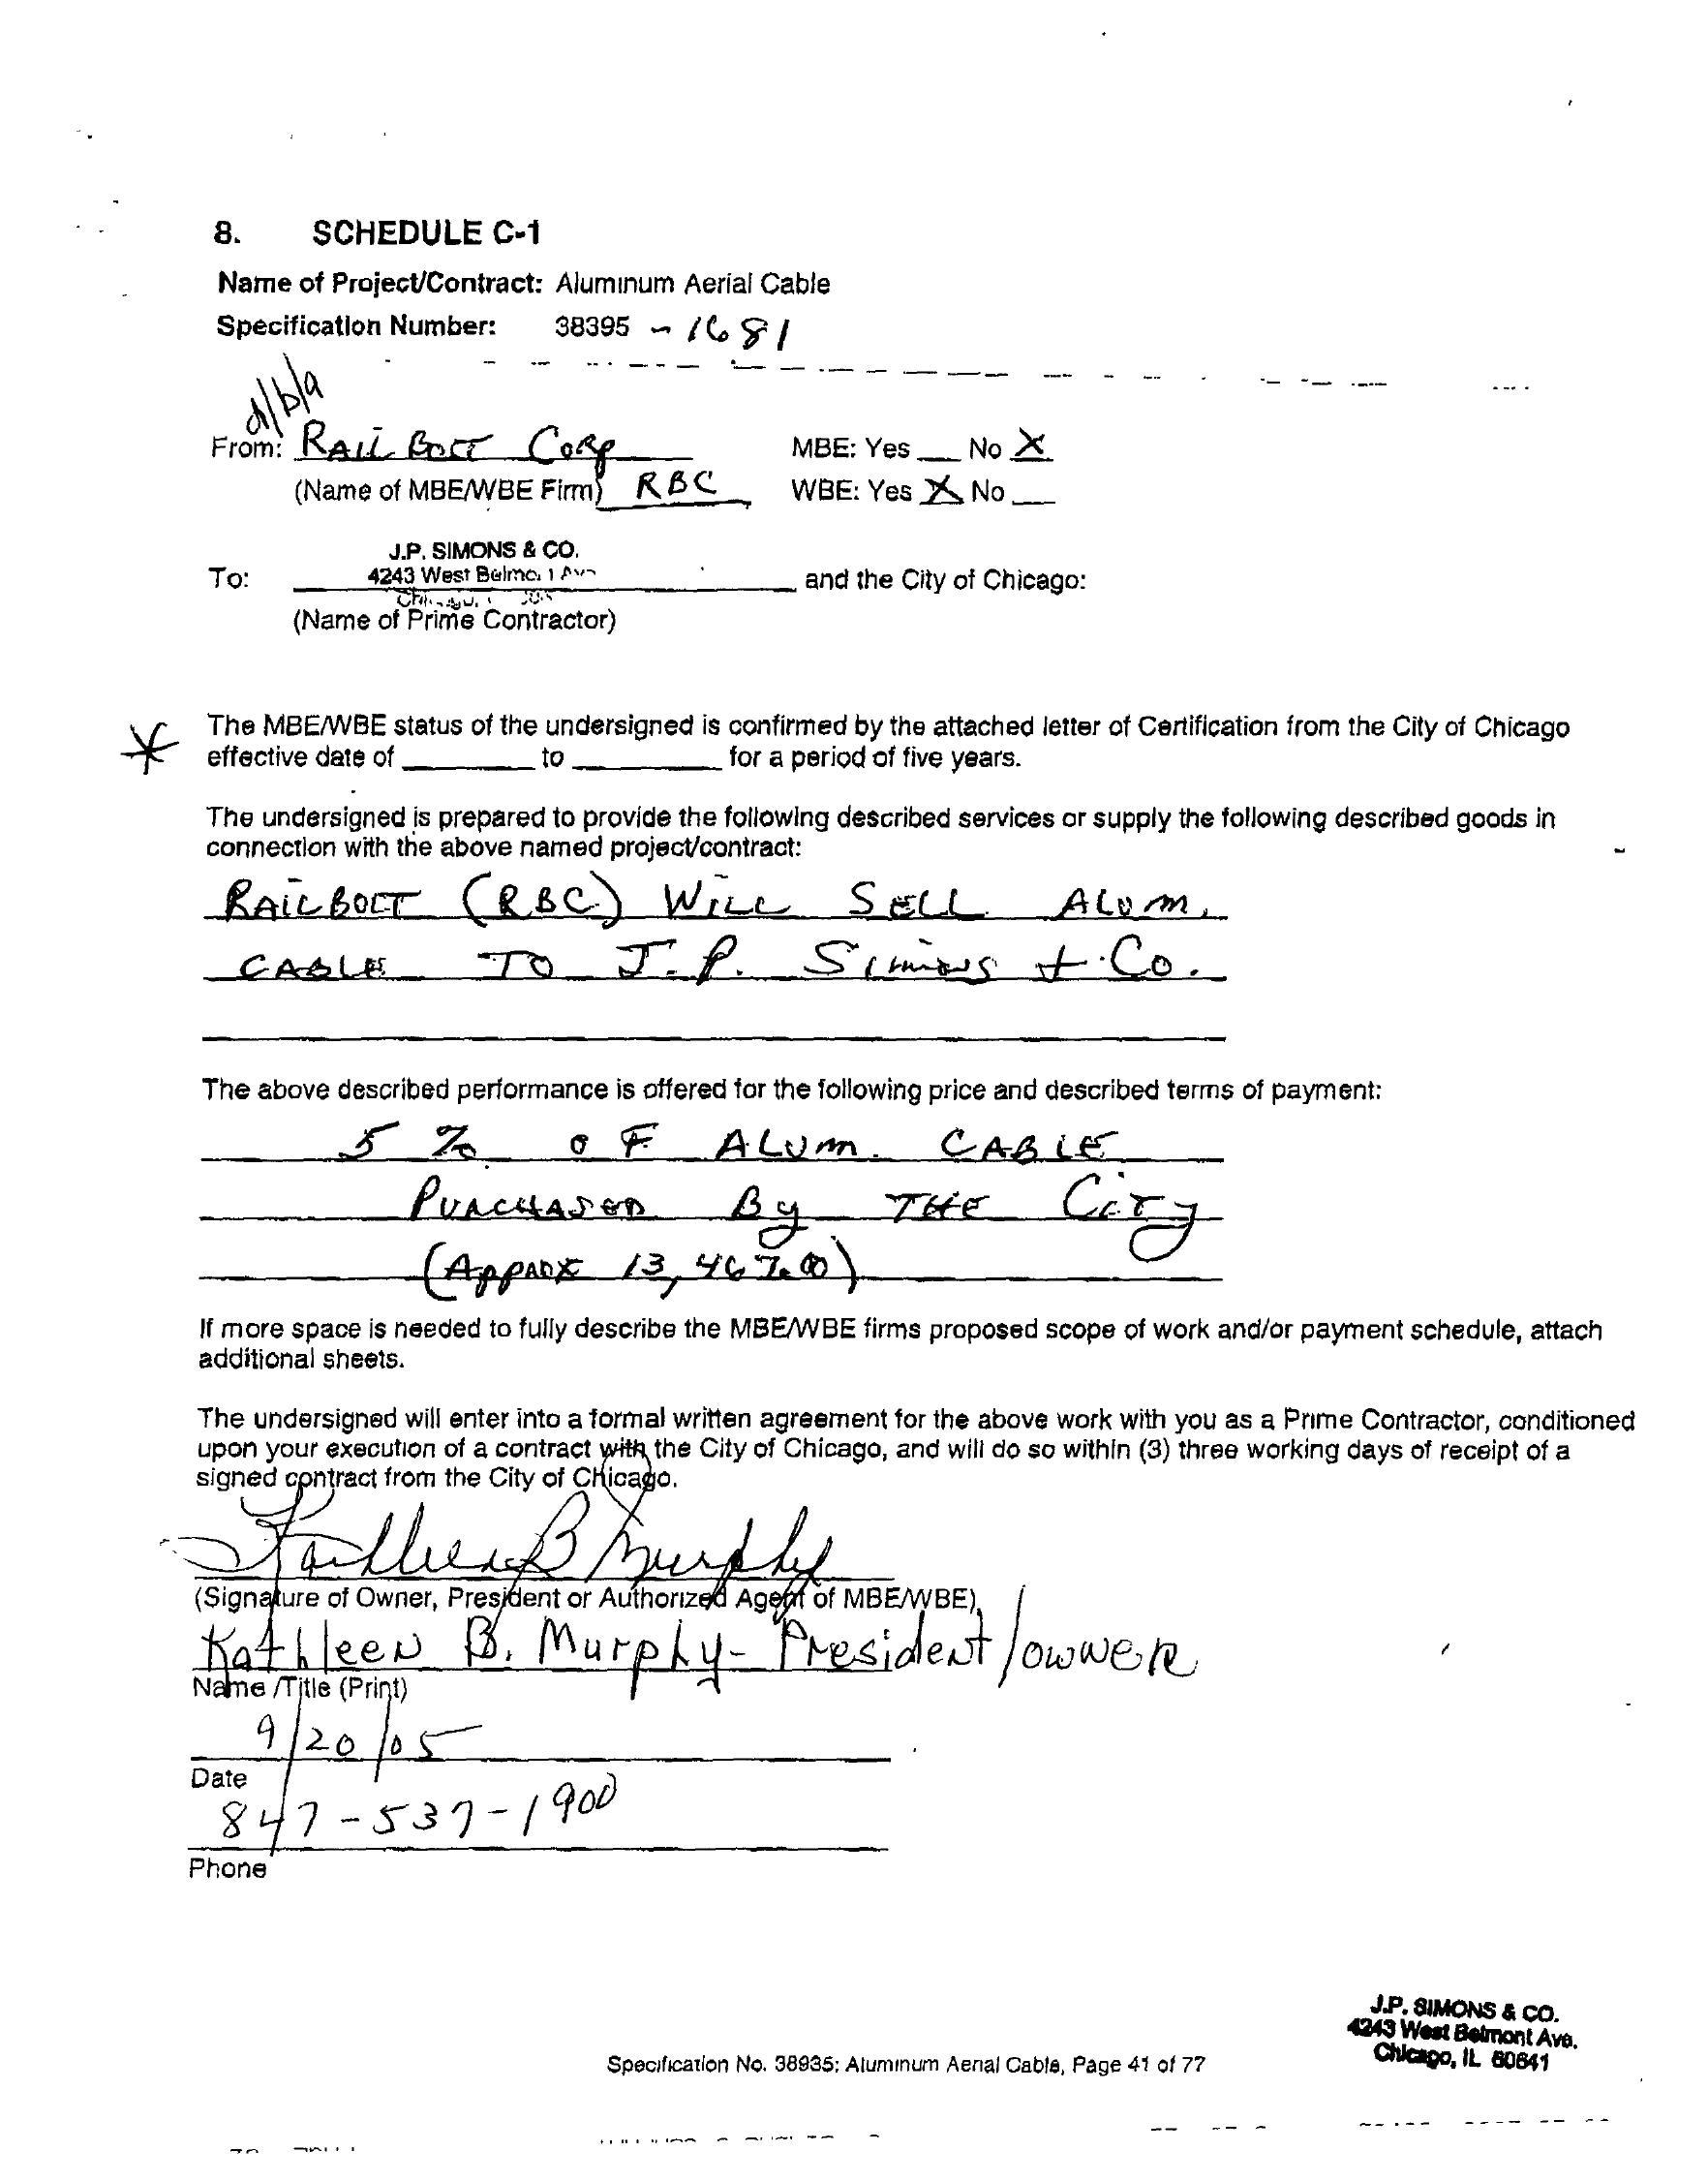 8. SCHEDULE C-1
Name of Project/Contract: Aluminum Aerial Cable
Specification Number: 38395 - 1681
d/b/a
From: RAIL BOLT CORP MBE: Yes ___ No X
(Name of MBE/WBE Firm) RBC WBE: Yes X No ___
J.P. SIMONS & CO.
To: 4243 West Belmont Ave and the City of Chicago:
(Name of Prime Contractor)
* The MBE/WBE status of the undersigned is confirmed by the attached letter of Certification from the City of Chicago
effective date of ________ to ________ for a period of five years.
The undersigned is prepared to provide the following described services or supply the following described goods in
connection with the above named project/contract:
RAILBOLT (RBC) WILL SELL ALUM.
CABLE TO J.P. SIMONS + CO.
The above described performance is offered for the following price and described terms of payment:
5 % OF ALUM. CABLE
PURCHASED By THE CITY
(APPROX 13,467.00)
If more space is needed to fully describe the MBE/WBE firms proposed scope of work and/or payment schedule, attach
additional sheets.
The undersigned will enter into a formal written agreement for the above work with you as a Prime Contractor, conditioned
upon your execution of a contract with the City of Chicago, and will do so within (3) three working days of receipt of a
signed contract from the City of Chicago.
Kathleen B Murphy
(Signature of Owner, President or Authorized Agent of MBE/WBE)
Kathleen B. Murphy - President/owner
Name /Title (Print)
9/20/05
Date
847-537-1900
Phone
J.P. SIMONS & CO.
4243 West Belmont Ave.
Chicago, IL 60641
Specification No. 38935; Aluminum Aerial Cable, Page 41 of 77